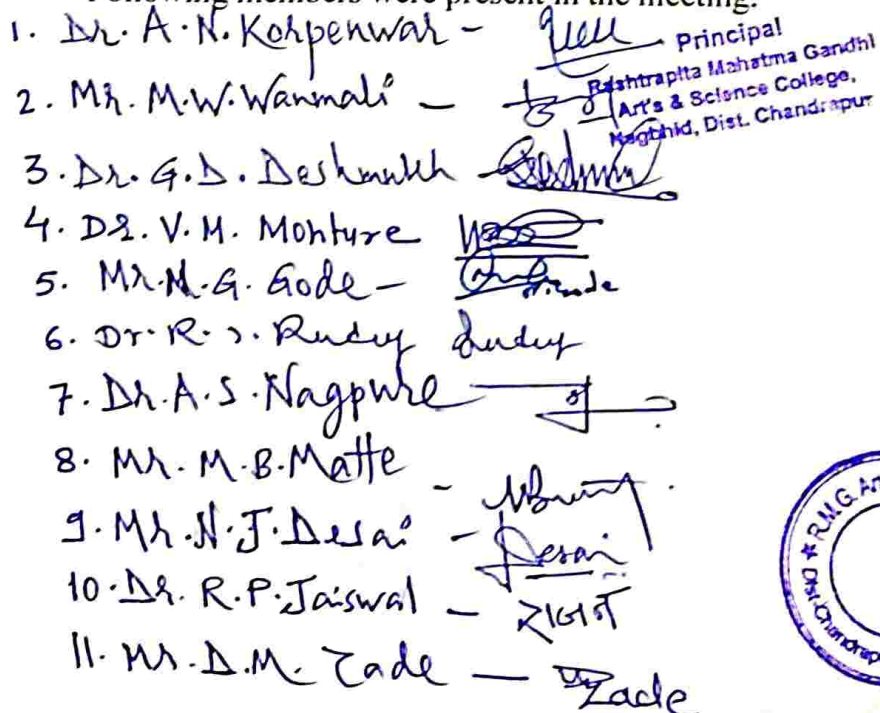 Following members were present in the meeting.
1. Dr. A. N. Korpenwar -
Principal
Rashtrapita Mahatma Gandhi
Art's & Science College,
Nagbhid, Dist. Chandrapur
2. Mr. M. W. Wanmali -
3. Dr. G. D. Deshmukh -
4. Dr. V. M. Monture
5. Mr. M. G. Gode -
6. Dr. R. S. Rudey Rudey
7. Dr. A. S. Nagpure
8. Mr. M. B. Matte -
9. Mr. N. J. Desai - Desai
10. Dr. R. P. Jaiswal -
11. Mr. D. M. Zade - Zade
R.M.G. Art
Dist-Chandrap